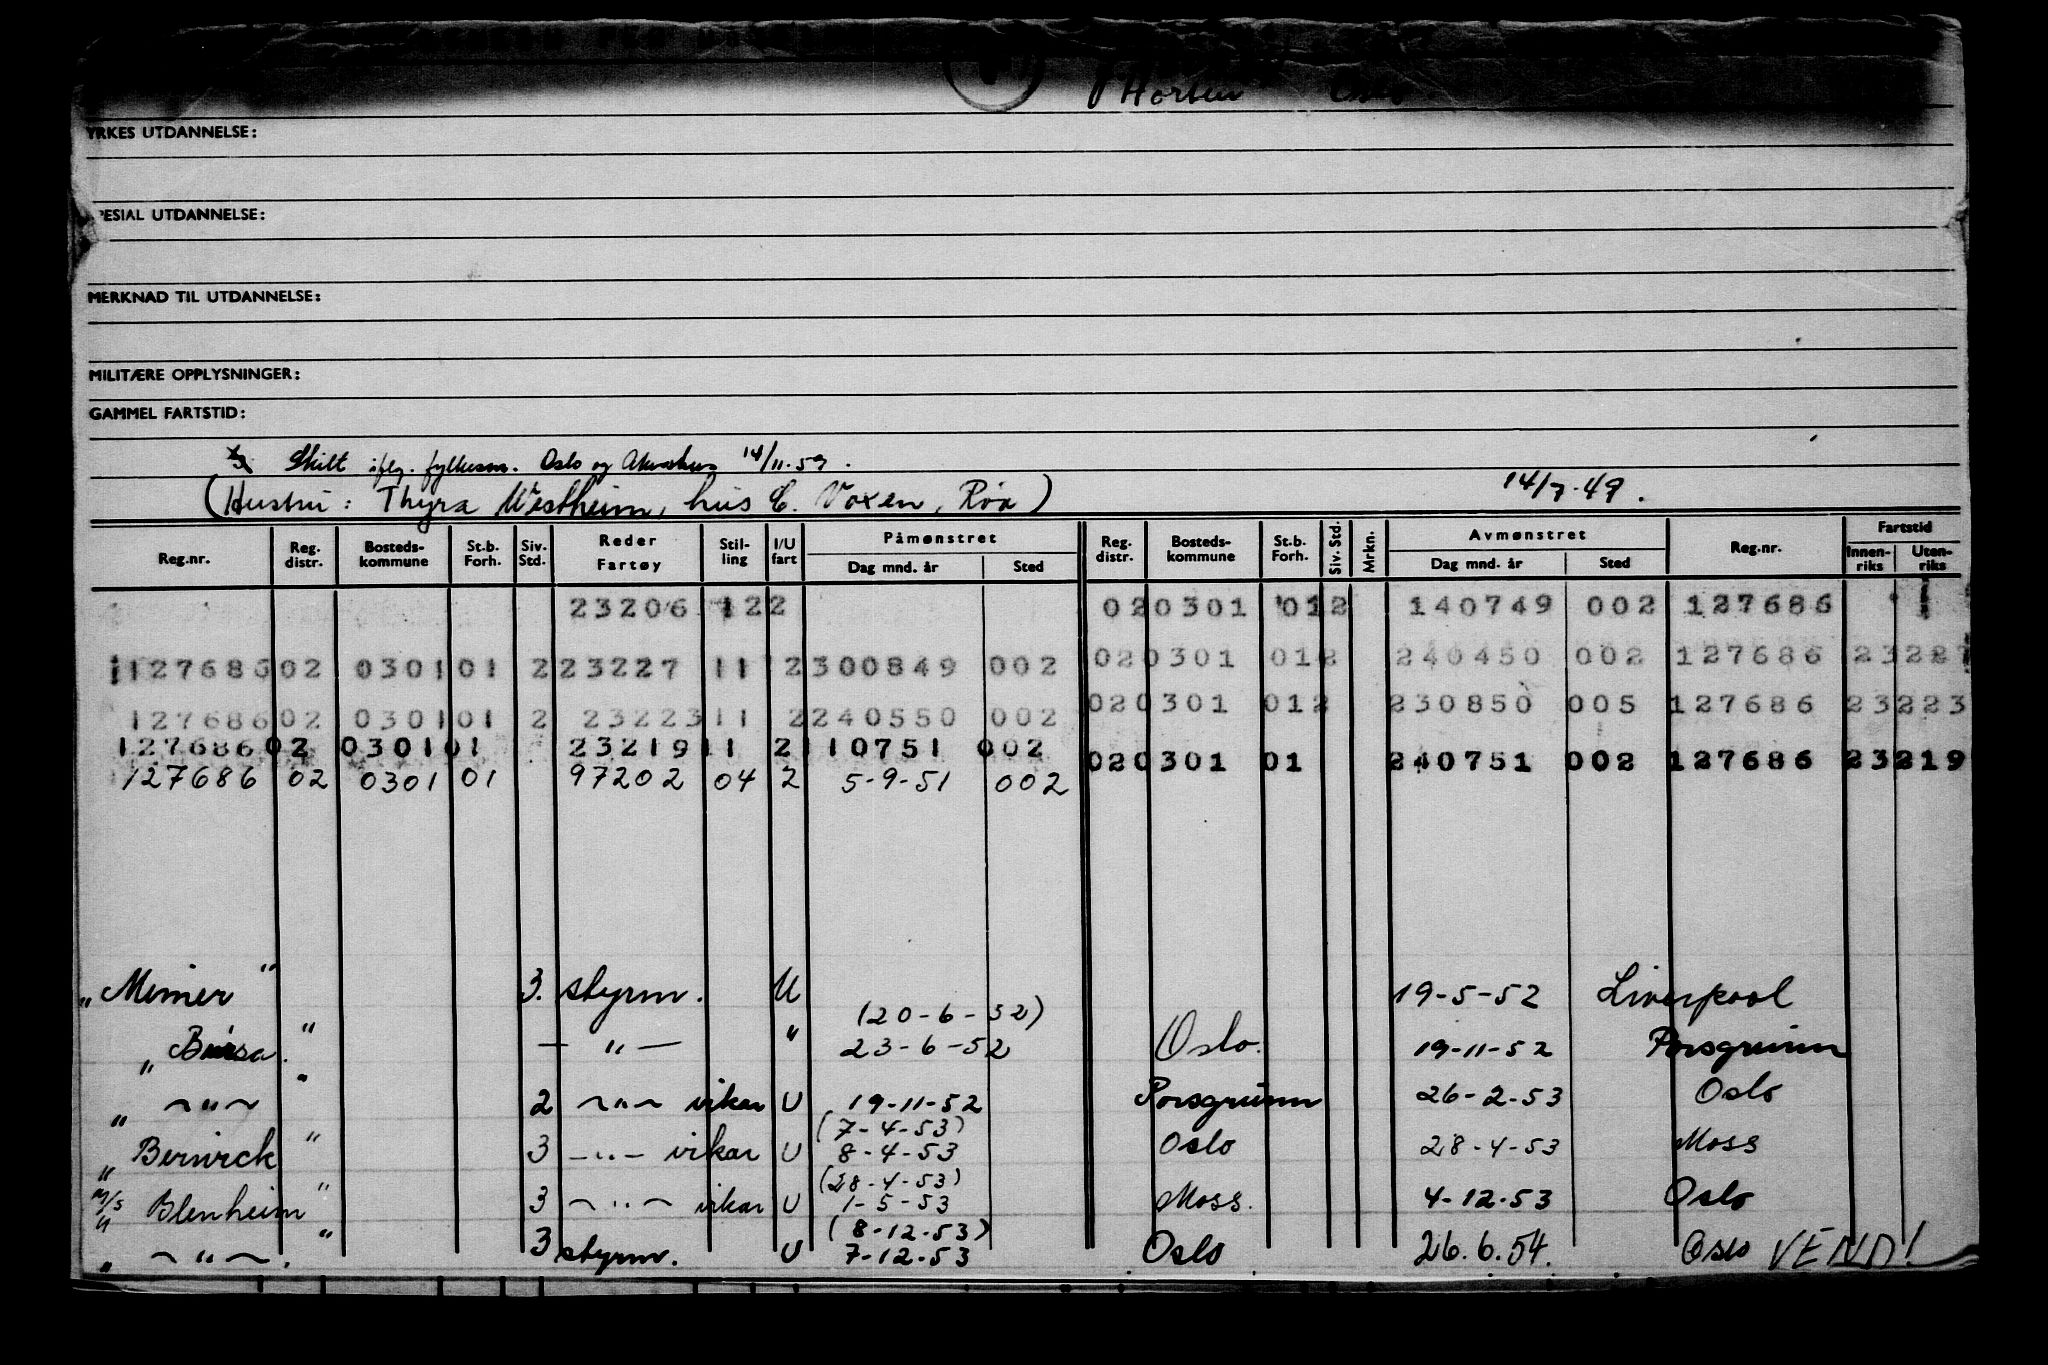 Horten Oslo
YRKES UTDANNELSE:
PESIAL UTDANNELSE:
MERKNAD TIL UTDANNELSE:
MILITÆRE OPPLYSNINGER:
GAMMEL FARTSTID:
Skilt iflg. fylkesm. Oslo og Akershus 14/11-59.
(Hustru: Thyra Westheim, hus C. Voxen, Røa) 14/7-49.
Reg.nr. Reg. distr. Bosteds-kommune St.b. Forh. Siv. Std. Reder Fartøy Stil-ling I/U fart Påmønstret Dag mnd. år Sted Reg. distr. Bosteds-kommune St.b. Forh. Siv. Std. Mrkn. Avmønstret Dag mnd. år Sted Reg.nr. Fartstid Innen-riks Uten-riks
23206 122 020301 012 140749 002 127686 1
127686 02 0301 01 2 23227 11 2 300849 002 020301 012 240450 002 127686 23227
127686 02 0301 01 2 23223 11 2 240550 002 020301 012 230850 005 127686 23223
127686 02 0301 01 23219 11 2 110751 002 020301 01 240751 002 127686 23219
127686 02 0301 01 97202 04 2 5-9-51 002
"Mimer" 3. styrm. U 19-5-52 Liverpool
(20-6-52)
"Bursa." — " — " 23-6-52 Oslo. 19-11-52 Porsgrunn
" ~ " ~ " 2 ~ " ~ vikar U 19-11-52 Porsgrunn 26-2-53 Oslo
(7-4-53)
"Berwick" 3 — " — vikar U 8-4-53 Oslo 28-4-53 Moss
(28-4-53)
M/S "Blenheim" 3 ~ " ~ vikar U 1-5-53 Moss. 4-12-53 Oslo
(8-12-53)
" ~ " ~. " 3 styrm. U 7-12-53 Oslo 26.6.54. Oslo VEND!